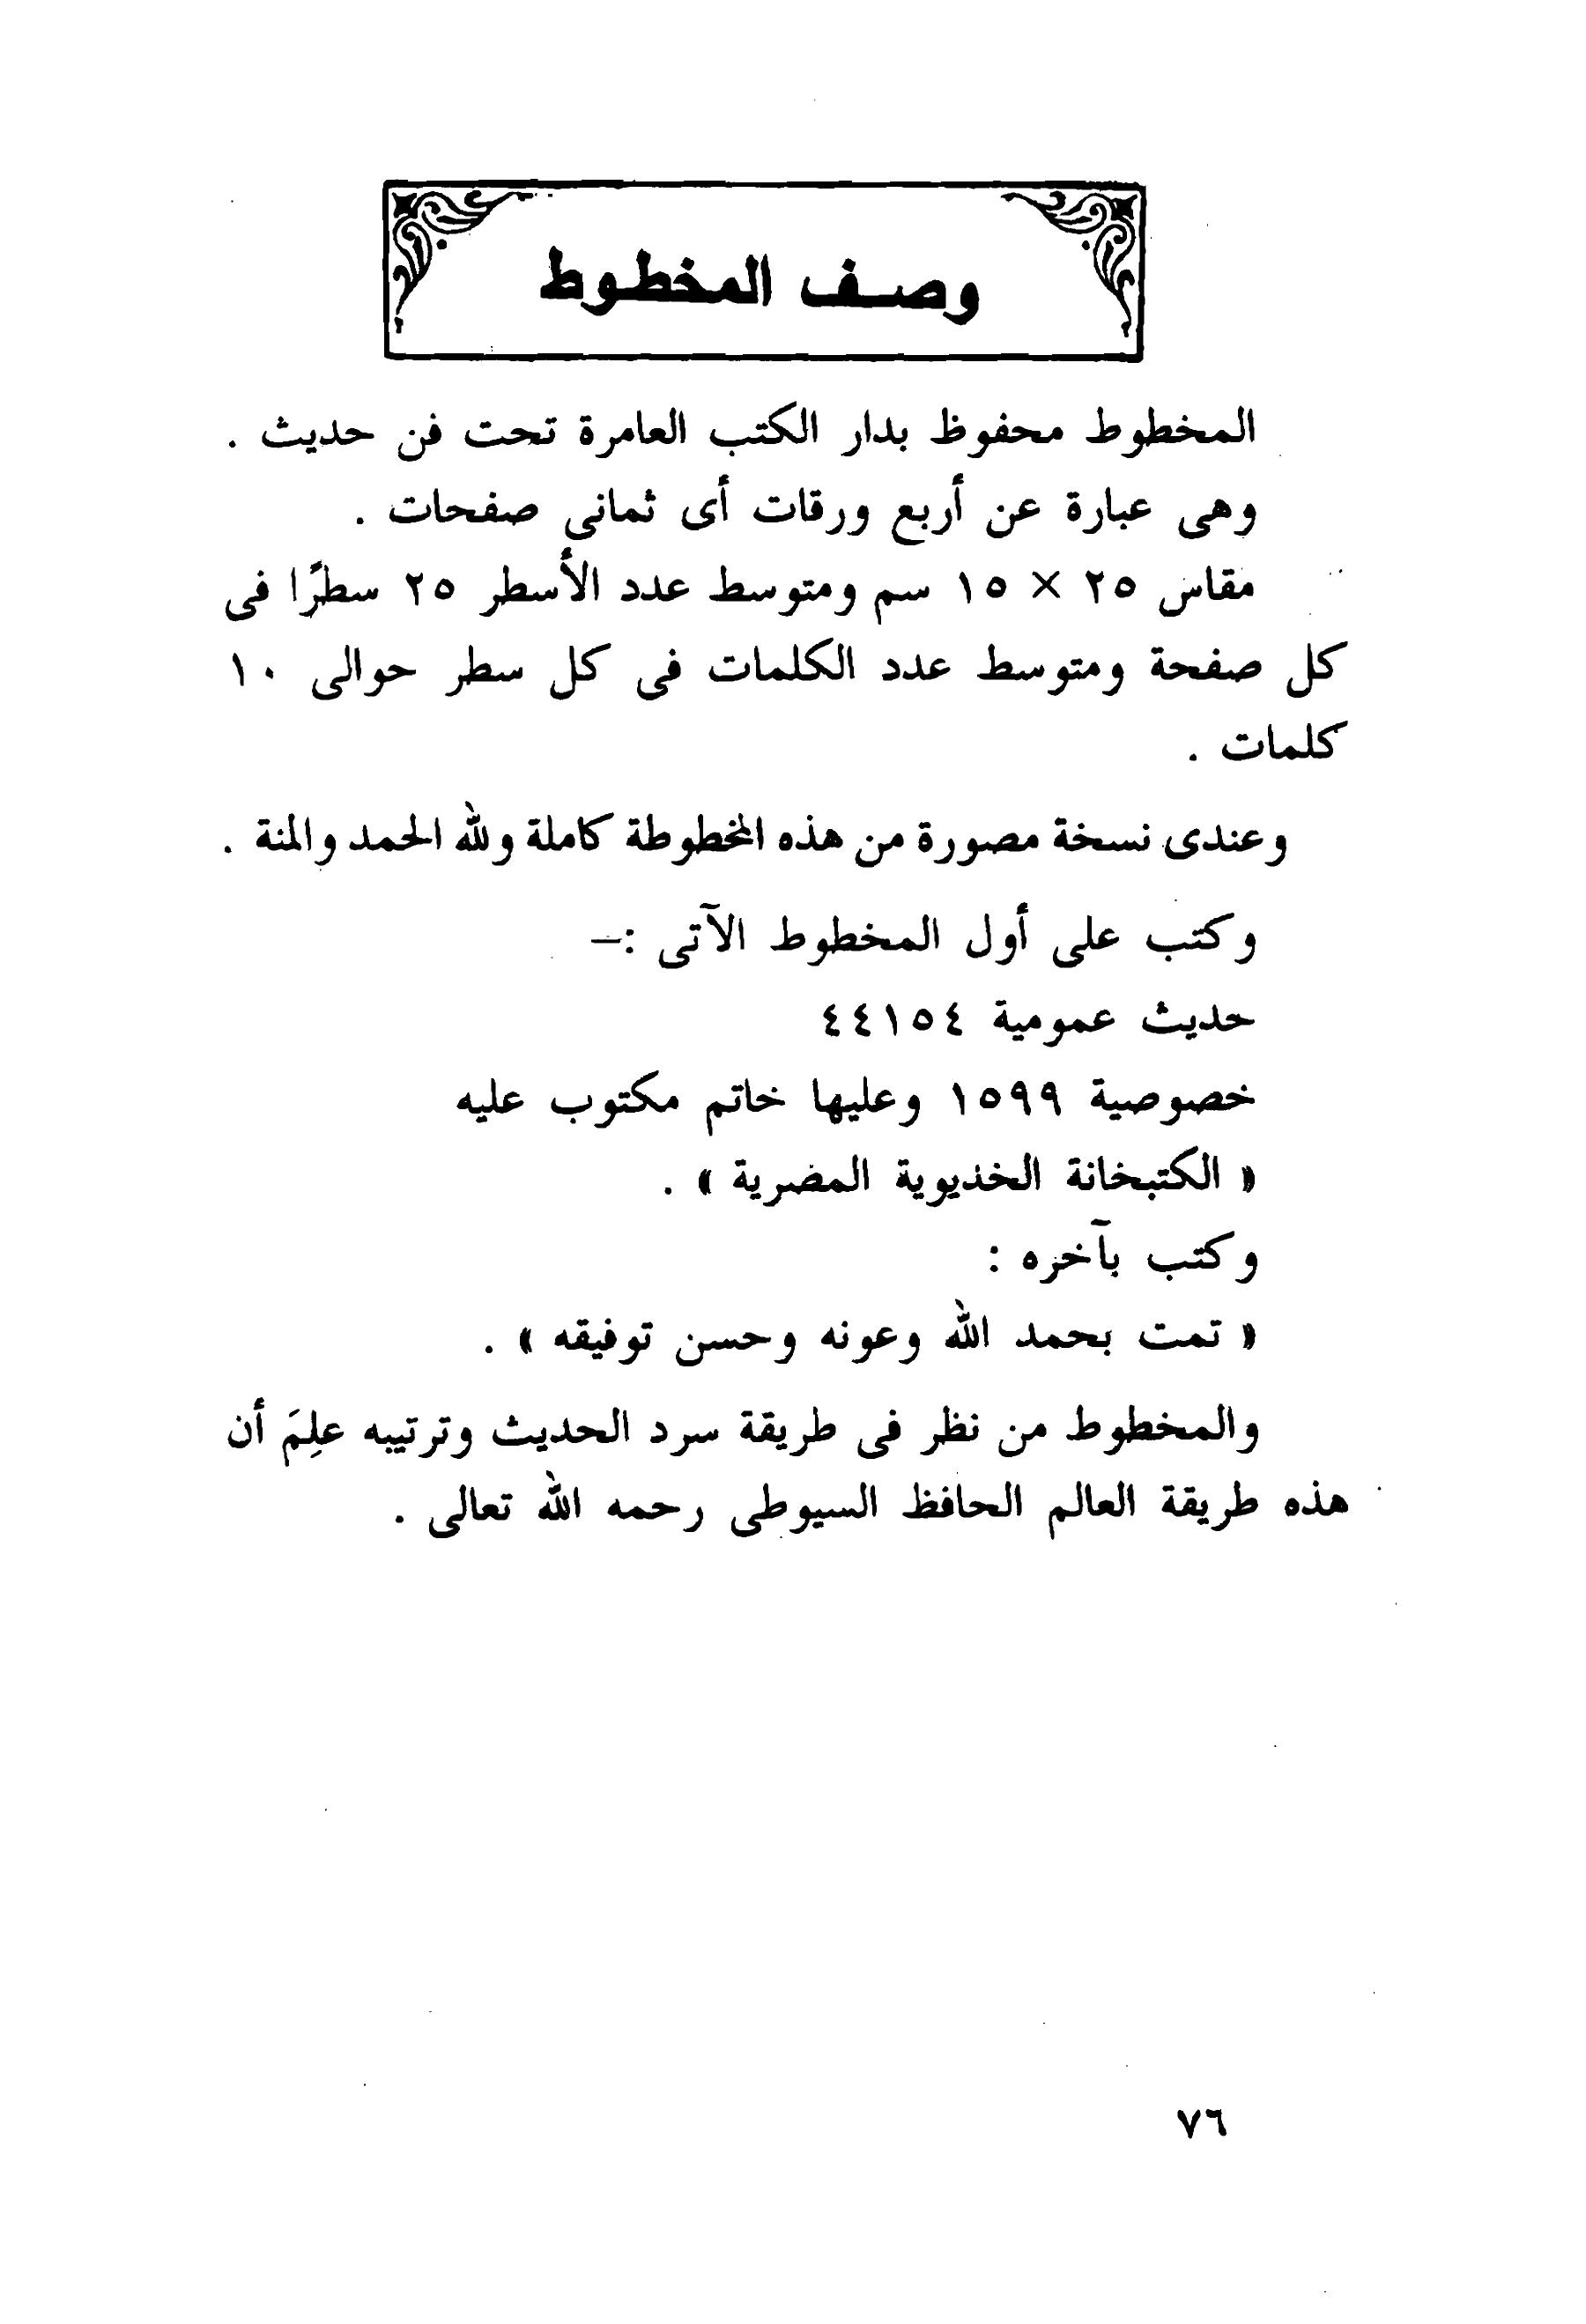 وصف المخطوط
المخطوط محفوظ بدار الكتب العامرة تحت فن حديث .
وهى عبارة عن أربع ورقات أى ثمانى صفحات .
مقاس ٢٥ × ١٥ سم ومتوسط عدد الأسطر ٢٥ سطرًا فى
كل صفحة ومتوسط عدد الكلمات فى كل سطر حوالى ١٠
كلمات .
وعندى نسخة مصورة من هذه المخطوطة كاملة ولله الحمد والمنة .
وكتب على أول المخطوط الآتى :–
حديث عمومية ٤٤١٥٤
خصوصية ١٥٩٩ وعليها خاتم مكتوب عليه
« الكتبخانة الخذيوية المضرية » .
وكتب بآخره :
« تمت بحمد الله وعونه وحسن توفيقه » .
والمخطوط من نظر فى طريقة سرد الحديث وترتيبه علِمَ أن
هذه طريقة العالم الحافظ السيوطى رحمه الله تعالى .
٧٦